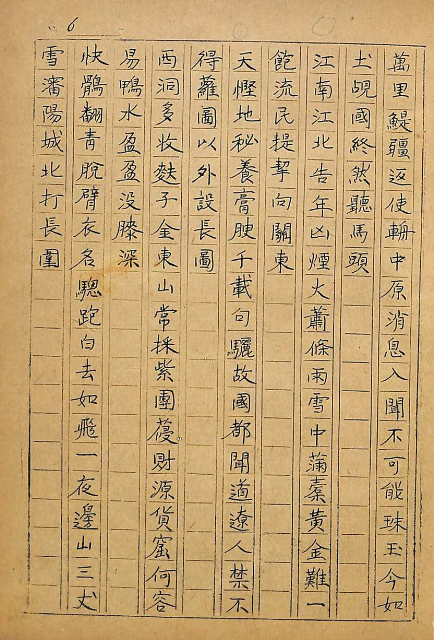 6
萬里鯷疆返使輈中原消息入聞不可能珠玉今如
土覘國終然聽馬頭
江南江北告年凶煙火蕭條雨雪中滿橐黃金難一
飽流民提挈向關東
天慳地秘養膏腴千載句驪故國都聞道遼人禁不
得蘿圖以外設長圖
西洞多收麩子金東山常採紫團蔘財源貨窟何容
易鴨水盈盈没膝深
快鶻翻青脫臂衣名驄跑白去如飛一夜邊山三丈
雪瀋陽城北打長圍